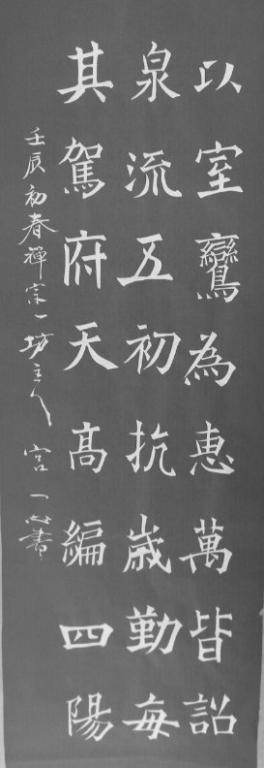 以室鸞為惠萬皆詔
泉流五初抗歲勤每
其駕府天高編四陽
壬辰初春禪宗一坊主人宫一心書